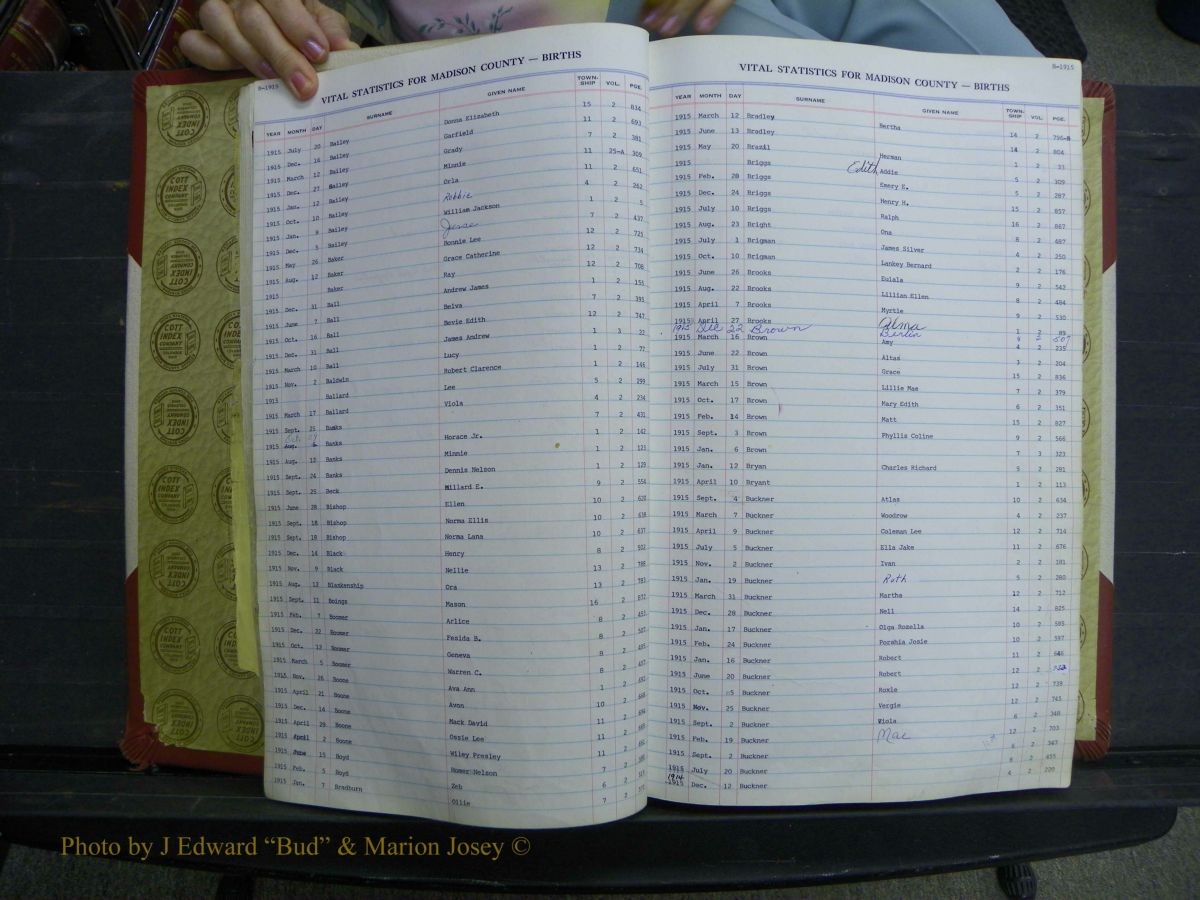 B-1915
VITAL STATISTICS FOR MADISON COUNTY — BIRTHS
YEAR MONTH DAY SURNAME GIVEN NAME TOWN-SHIP VOL. PGE.
1915 July 20 Bailey Donna Elizabeth 15 2 834
1915 Dec. 16 Bailey Garfield 11 2 693
1915 March 12 Bailey Grady 7 2 381
1915 Dec. 27 Bailey Minnie 11 25-A 309
1915 Jan. 12 Bailey Orla 11 2 651
1915 Oct. 10 Bailey Robbie 4 2 262
1915 Jan. 8 Bailey William Jackson 1 2 5
1915 Dec. 5 Bailey Jesse 7 2 437
1915 May 26 Baker Bonnie Lee 12 2 725
1915 Aug. 12 Baker Grace Catherine 12 2 734
1915 Baker Ray 12 2 708
1915 Dec. 31 Ball Andrew James 1 2 155
1915 June 7 Ball Belva 7 2 395
1915 Oct. 16 Ball Bevie Edith 12 2 747
1915 Dec. 31 Ball James Andrew 1 3 22
1915 March 10 Ball Lucy 1 2 77
1915 Nov. 2 Baldwin Robert Clarence 1 2 146
1915 Ballard Lee 5 2 299
1915 March 17 Ballard Viola 4 2 234
1915 Sept. 25 Banks 7 2 431
1915 Aug. Banks Horace Jr. 1 2 142
1915 Aug. 12 Banks Minnie 1 2 121
1915 Sept. 24 Banks Dennis Nelson 1 2 129
1915 Sept. 25 Beck Millard E. 9 2 554
1915 June 28 Bishop Ellen 10 2 620
1915 Sept. 18 Bishop Norma Ellis 10 2 638
1915 Sept. 18 Bishop Norma Lana 10 2 637
1915 Dec. 14 Black Henry 8 2 502
1915 Nov. 9 Black Nellie 13 2 788
1915 Aug. 12 Blankenship Ora 13 2 783
1915 Sept. 11 Boings Mason 16 2 872
1915 Feb. 7 Boomer Arlice 8 2 453
1915 Dec. 22 Boomer Fesida B. 8 2 507
1915 Oct. 13 Boomer Geneva 8 2 495
1915 March 5 Boomer Warren C. 8 2 457
1915 Nov. 26 Boone Ava Ann 1 2
1915 April 21 Boone Avon 10 2
1915 Dec. 14 Boone Mack David 11 2 694
1915 April 29 Boone Ossie Lee 11 2
1915 April 2 Boone Wiley Presley 11 2
1915 June 15 Boyd Homer Nelson 7 2
1915 Feb. 5 Boyd Zeb 6 2
1915 Jan. 7 Bradburn Ollie 7 2
B-1915
VITAL STATISTICS FOR MADISON COUNTY — BIRTHS
YEAR MONTH DAY SURNAME GIVEN NAME TOWN-SHIP VOL. PGE.
1915 March 12 Bradley Bertha 14 2 796-B
1915 June 13 Bradley 14 2 804
1915 May 20 Brazil Herman 1 2 33
1915 Briggs Edith Addie 5 2 309
1915 Feb. 28 Briggs Emery E. 5 2 287
1915 Dec. 24 Briggs Henry H. 15 2 857
1915 July 10 Briggs Ralph 16 2 867
1915 Aug. 23 Bright Ona 8 2 487
1915 July 1 Brigman James Silver 4 2 250
1915 Oct. 10 Brigman Lankey Bernard 2 2 176
1915 June 26 Brooks Eulala 9 2 542
1915 Aug. 22 Brooks Lillian Ellen 8 2 484
1915 April 7 Brooks Myrtle 9 2 530
1915 April 27 Brooks Alma 1 2 89
1915 Dec 22 Brown Berlin 9 2 507
1915 March 16 Brown Amy 4 2 235
1915 June 22 Brown Altas 3 2 204
1915 July 31 Brown Grace 15 2 836
1915 March 15 Brown Lillie Mae 7 2 379
1915 Oct. 17 Brown Mary Edith 6 2 351
1915 Feb. 14 Brown Matt 15 2 827
1915 Sept. 3 Brown Phyllis Coline 9 2 566
1915 Jan. 6 Brown 7 3 323
1915 Jan. 12 Bryan Charles Richard 5 2 291
1915 April 10 Bryant 1 2 113
1915 Sept. 4 Buckner Atlas 10 2 634
1915 March 7 Buckner Woodrow 4 2 237
1915 April 9 Buckner Coleman Lee 12 2 714
1915 July 5 Buckner Ella Jake 11 2 676
1915 Nov. 2 Buckner Ivan 2 2 181
1915 Jan. 19 Buckner Ruth 5 2 280
1915 March 31 Buckner Martha 12 2 712
1915 Dec. 28 Buckner Nell 14 2 825
1915 Jan. 17 Buckner Olga Rozella 10 2 585
1915 Feb. 24 Buckner Porshia Josie 10 2 597
1915 Jan. 16 Buckner Robert 11 2 646
1915 June 20 Buckner Robert 12 2
1915 Oct. 5 Buckner Roxie 12 2 739
1915 Nov. 25 Buckner Vergie 12 2 745
1915 Sept. 2 Buckner Wiola 6 2 348
1915 Feb. 19 Buckner Mae 12 2 703
1915 Sept. 2 Buckner 6 2 347
1915 July 20 Buckner 8 2 455
1914 1915 Dec. 12 Buckner 4 2 220
COTT INDEX COMPANY
Photo by J Edward “Bud” & Marion Josey ©